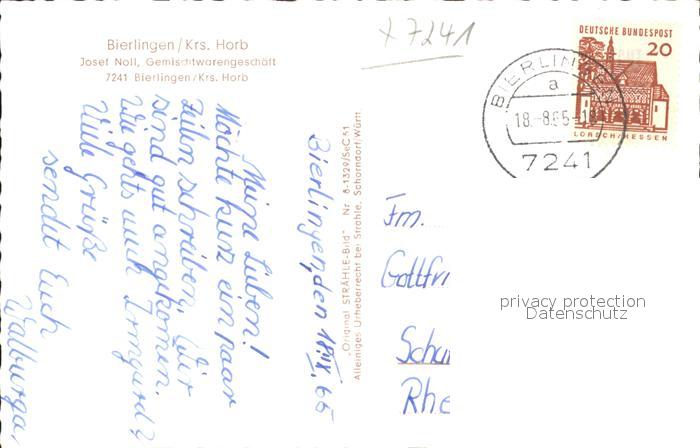 Bierlingen/Krs. Horb
Josef Noll, Gemischtwarengeschäft
7241 Bierlingen/Krs. Horb
x 7241
DEUTSCHE BUNDESPOST
20
LORSCH/HESSEN
BIERLINGEN
a
18.-8.65-18
7241
Bierlingen, den 18.IX.65
Meine Lieben!
Möchte kurz ein paar
Zeilen schreiben. Wir
sind gut angekommen.
Wie gehts euch Irmgard?
Viele Grüße
sendet Euch
Walburga
„Original STRÄHLE-Bild" Nr 8-1329/SeC 51
Alleiniges Urheberrecht bei Strähle, Schorndorf/Württ.
Fm.
Gottfri
Schu
Rhe
privacy protection
Datenschutz